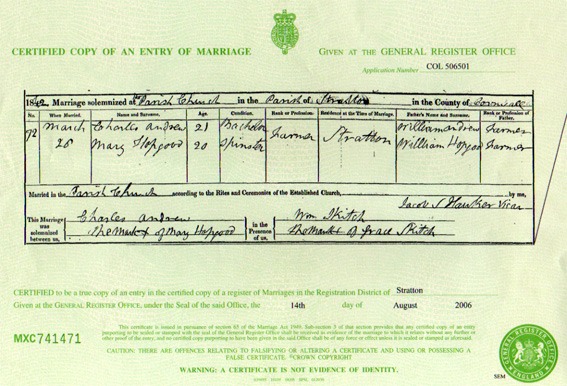 CERTIFIED COPY OF AN ENTRY OF MARRIAGE
GIVEN AT THE GENERAL REGISTER OFFICE
Application Number COL 506501
1842 Marriage solemnized at the Parish Church in the Parish of Stratton in the County of Cornwall
No. When Married. Name and Surname. Age. Condition. Rank or Profession. Residence at the Time of Marriage. Father's Name and Surname. Rank or Profession of Father.
72 March Charles Andrew 21 Bachelor Farmer Stratton William Andrew Farmer
28 Mary Hopgood 20 Spinster William Hopgood Farmer
Married in the Parish Church according to the Rites and Ceremonies of the Established Church, by me,
Jacob Hawker Vicar
This Marriage was solemnized between us, Charles Andrew in the Presence of us, Wm Skitch
The Mark x of Mary Hopgood The Mark x of Grace Skitch
CERTIFIED to be a true copy of an entry in the certified copy of a register of Marriages in the Registration District of Stratton
Given at the GENERAL REGISTER OFFICE, under the Seal of the said Office, the 14th day of August 2006
MXC741471
This certificate is issued in pursuance of section 65 of the Marriage Act 1949. Sub-section 3 of that section provides that any certified copy of an entry
purporting to be sealed or stamped with the seal of the General Register Office shall be received as evidence of the marriage to which it relates without any further or
other proof of the entry, and no certified copy purporting to have been given in the said Office shall be of any force or effect unless it is sealed or stamped as aforesaid.
CAUTION: THERE ARE OFFENCES RELATING TO FALSIFYING OR ALTERING A CERTIFICATE AND USING OR POSSESSING A
FALSE CERTIFICATE. ©CROWN COPYRIGHT
WARNING: A CERTIFICATE IS NOT EVIDENCE OF IDENTITY.
GENERAL REGISTER OFFICE
ENGLAND
SEM